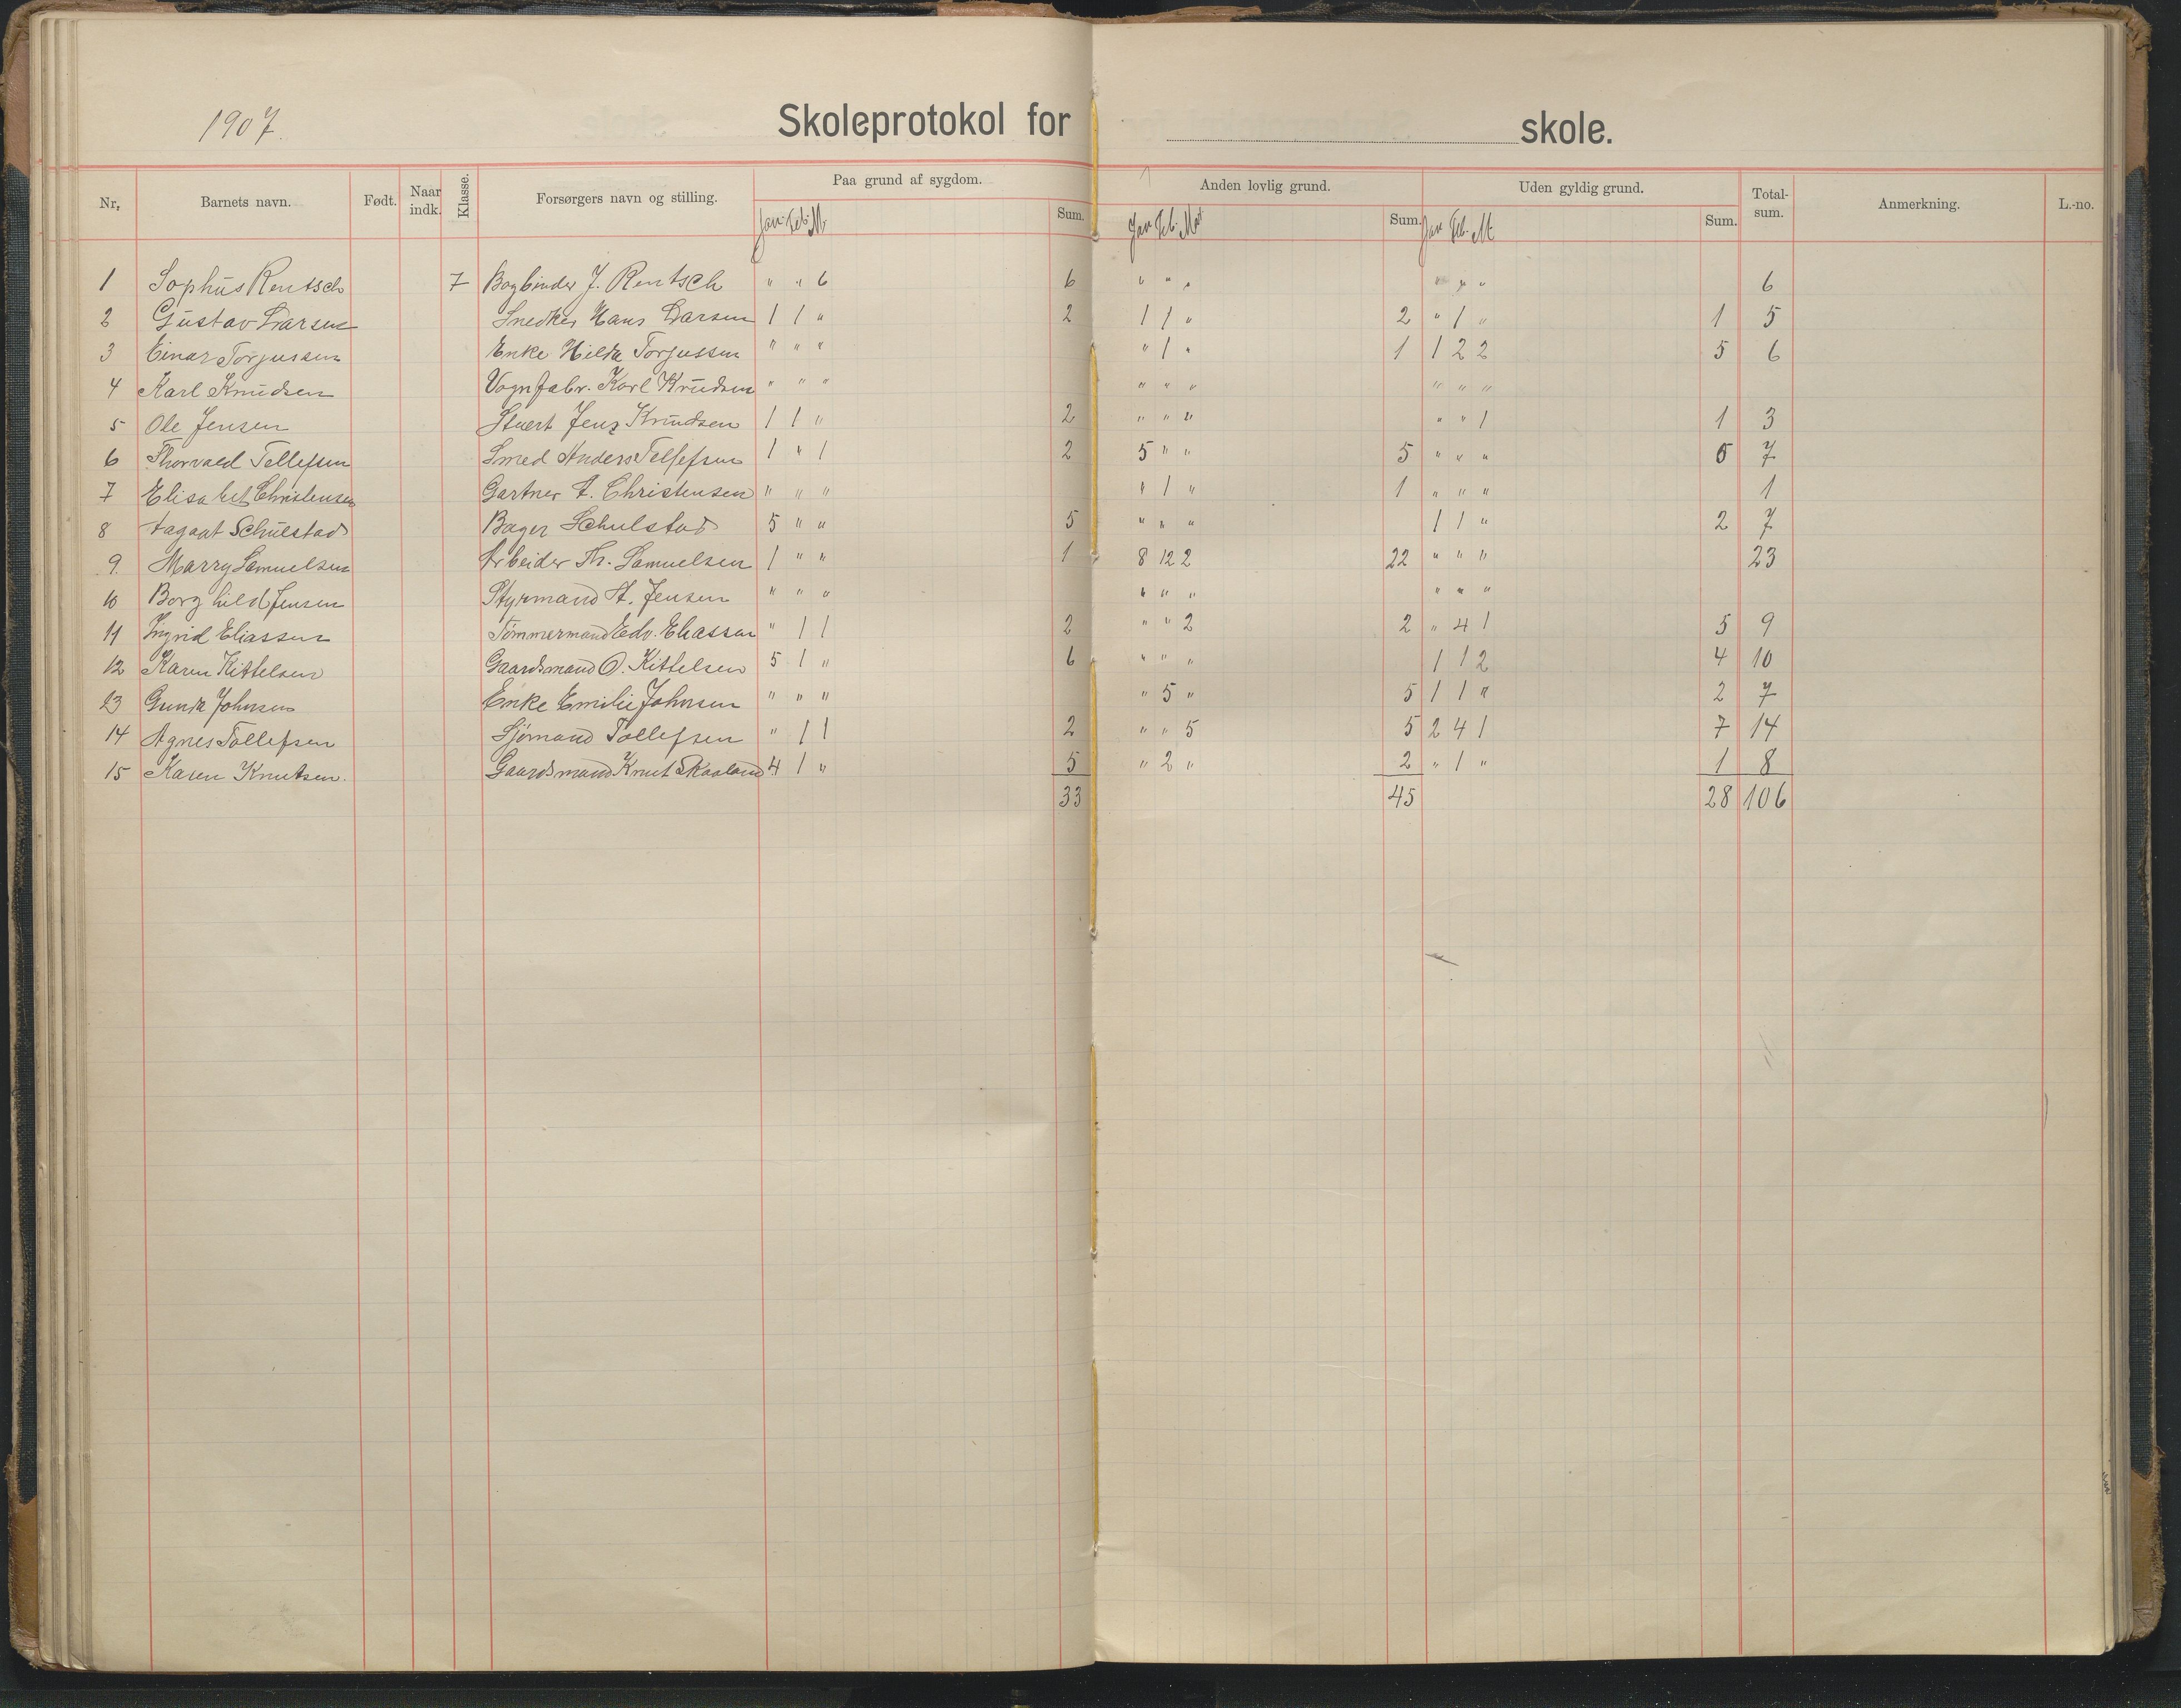 1907.
Skoleprotokol for skole.
Nr. Barnets navn. Født. Naar indk. Klasse. Forsørgers navn og stilling. Paa grund af sygdom. Sum. Anden lovlig grund. Sum. Uden gyldig grund. Sum. Total-sum. Anmerkning. L.-no.
Jan. Feb. M. Jan Feb. Mar. Jan Feb. M.
1 Sophus Rentsch 7 Bogbinder J. Rentsch " " 6 6 " " " " " " 6
2 Gustav Larsen Snedker Hans Larsen 1 1 " 2 1 1 " 2 " 1 " 1 5
3 Einar Torjussen Enke Hilda Torjussen " " " " 1 " 1 1 2 2 5 6
4 Karl Knudsen Vognfabr. Karl Knudsen " " " " " " " " "
5 Ole Jensen Stuert Jens Knudsen 1 1 " 2 " " " " " 1 1 3
6 Thorvald Tellefsen Smed Anders Tellefsen 1 " 1 2 5 " " 5 " " " 0 7
7 Elisabet Christensen Gartner A. Christensen " " " " 1 " 1 " " " 1
8 Aagaat Schulstad Bager Schulstad 5 " " 5 " " " 1 1 " 2 7
9. Marry Samuelsen Arbeider Th. Samuelsen 1 " " 1 8 12 2 22 " " " 23
10 Borghild Jensen Styrmand A. Jensen " " " " " " " " "
11 Ingrid Eliassen Tømmermand Edv. Eliassen " 1 1 2 " " 2 2 " 4 1 5 9
12 Karen Kittelsen Gaardsmand O. Kittelsen 5 1 " 6 " " " 1 1 2 4 10
13 Gunda Johnsen Enke Emilie Johnsen " " " " 5 " 5 1 1 " 2 7
14 Agnes Tollefsen Sjømand Tollefsen " 1 1 2 " " 5 5 2 4 1 7 14
15 Karen Knutsen. Gaardsmand Knut Skaaland 4 1 " 5 " 2 " 2 " 1 " 1 8
33 45 28 106